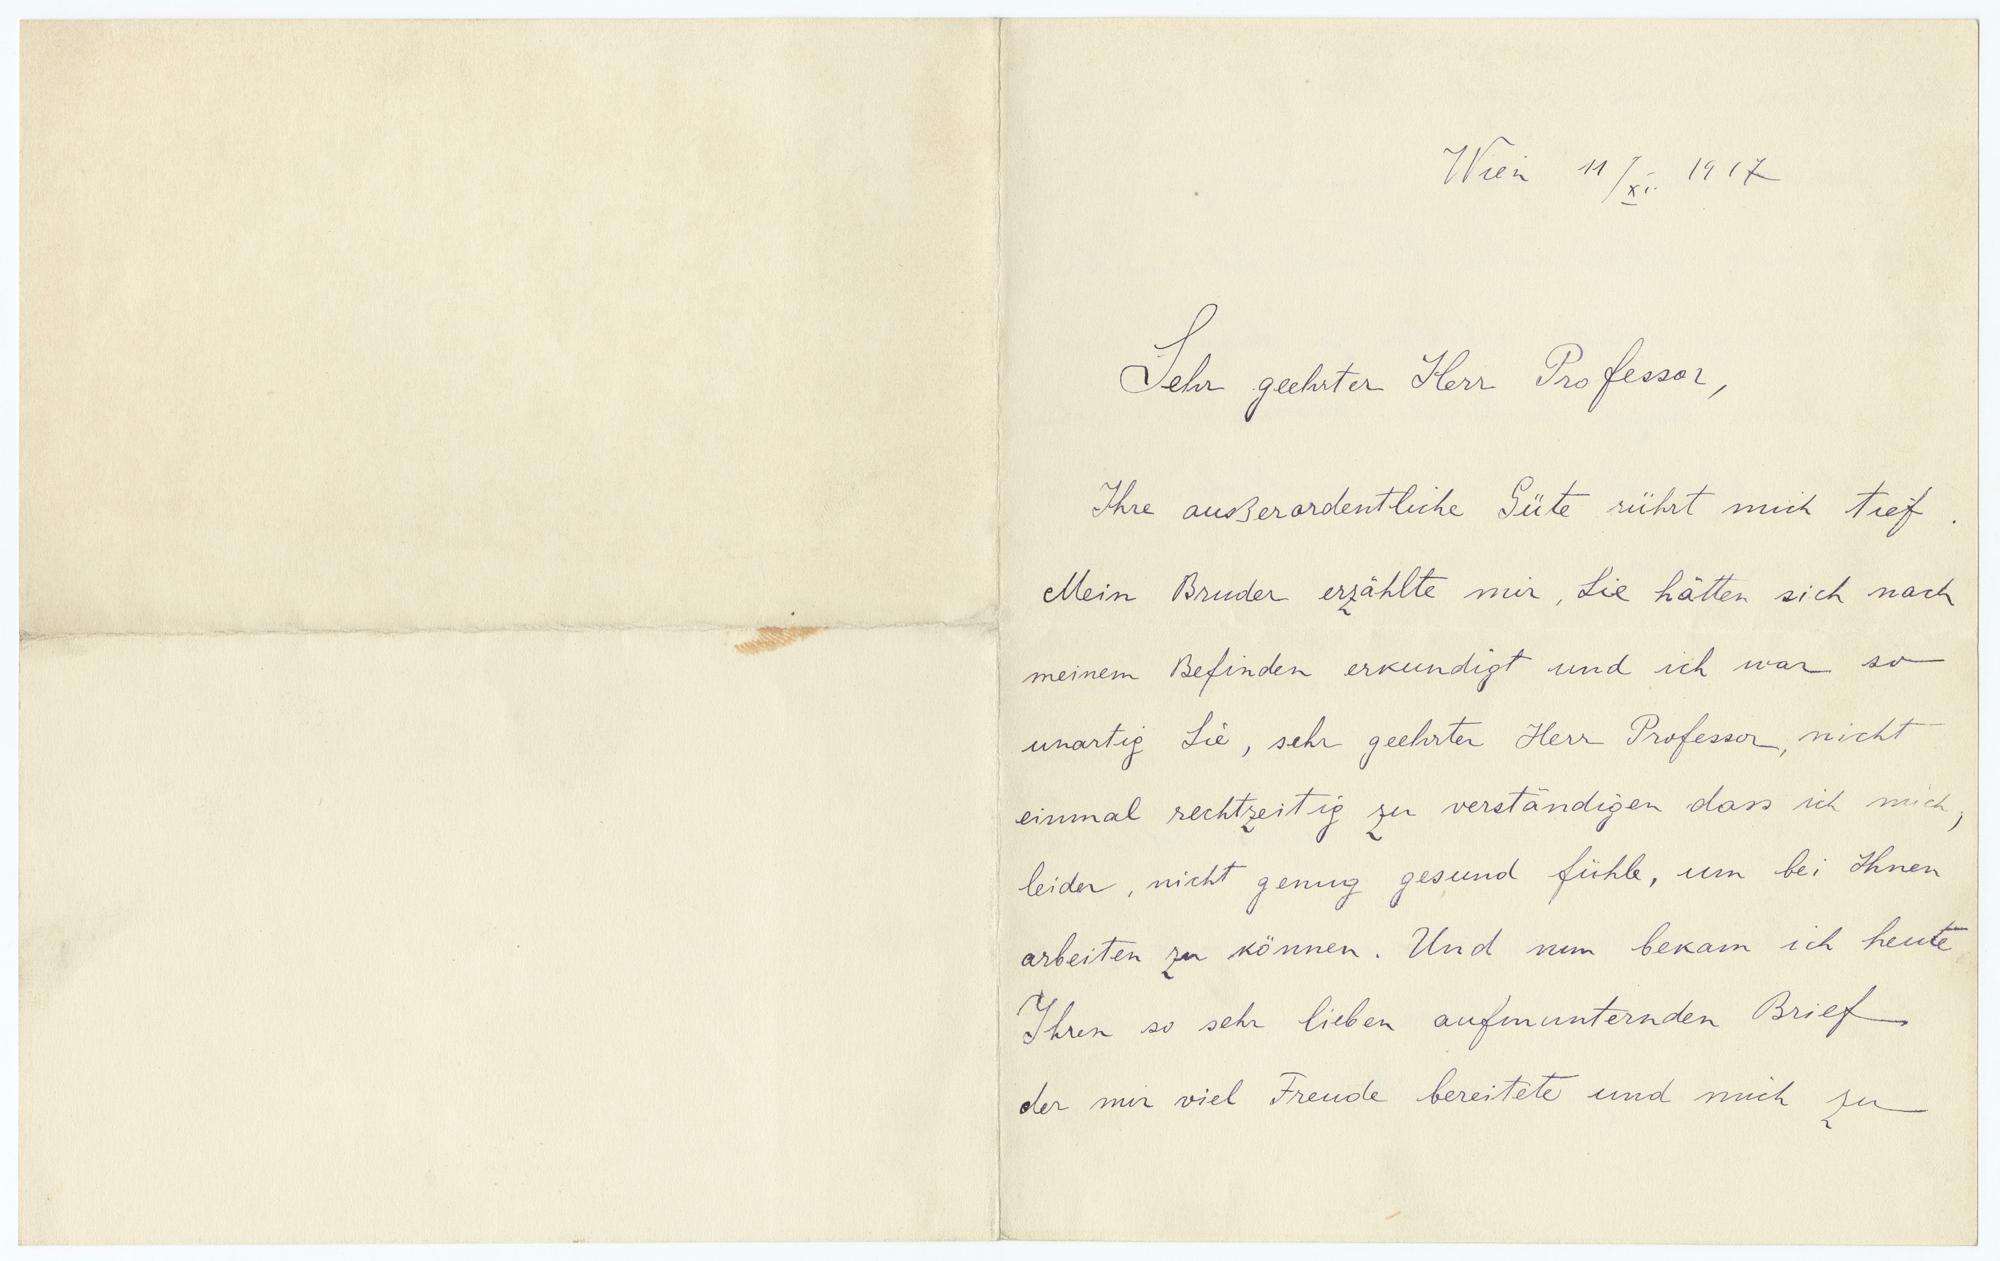 Wien 11/XI. 1917
Sehr geehrter Herr Professor,
Ihre außerordentliche Güte rührt mich tief.
Mein Bruder erzählte mir, Sie hätten sich nach
meinem Befinden erkundigt und ich war so
unartig Sie, sehr geehrter Herr Professor, nicht
einmal rechtzeitig zu verständigen dass ich mich,
leider, nicht genug gesund fühle, um bei Ihnen
arbeiten zu können. Und nun bekam ich heute
Ihren so sehr lieben aufmunternden Brief
der mir viel Freude bereitete und mich zu